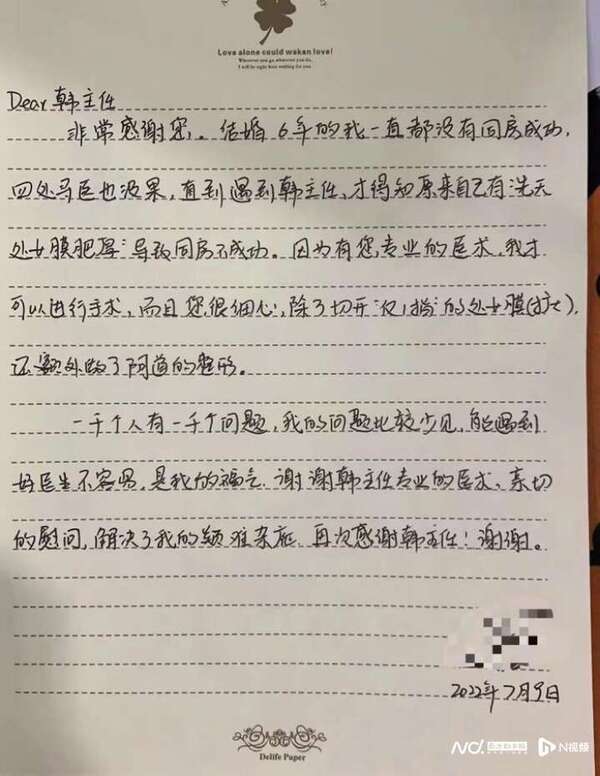 Love alone could wakan love!
Wherever you go, whatever you do,
I will be right here waiting for you.
Dear 韩主任
非常感谢您。结婚6年的我一直都没有同房成功,
四处寻医也没果,直到遇到韩主任,才得知原来自己有先天
处女膜肥厚导致同房不成功。因为有您专业的医术,我才
可以进行手术,而且您很细心,除了切开仅1指的处女膜(扩大),
还额外做了阴道的整形。
一千个人有一千个问题,我的问题比较少见,能遇到
好医生不容易,是我的福气.谢谢韩主任专业的医术、亲切
的慰问,解决了我的疑难杂症.再次感谢韩主任!谢谢。
2022年7月9日
Delife Paper
N视频